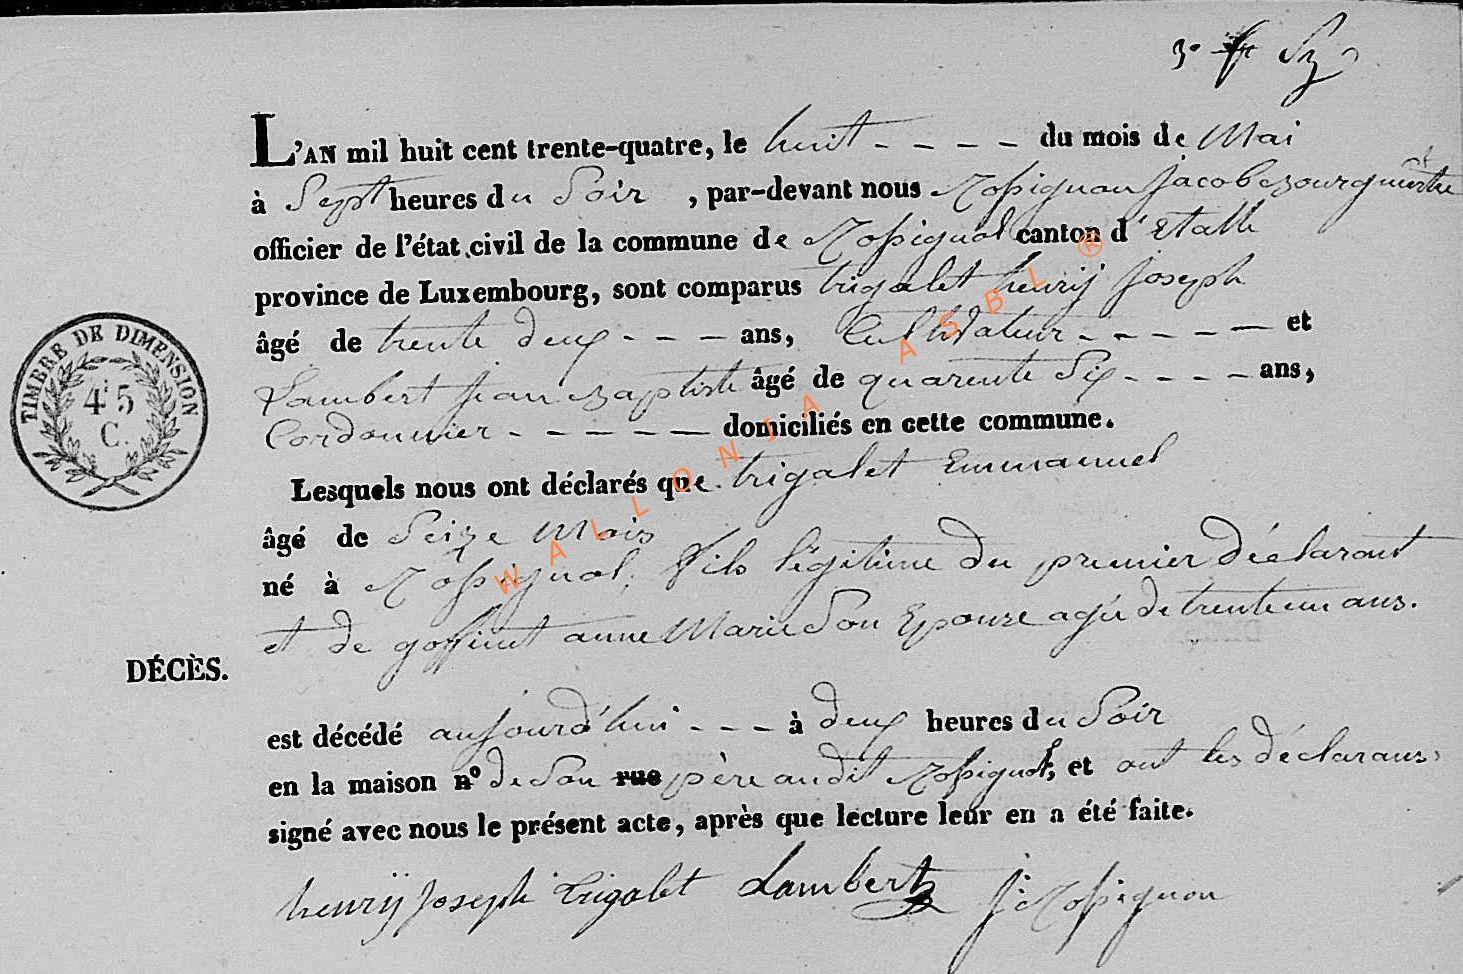 L'AN mil huit cent trente-quatre, le huit - - - - du mois de Mai
à Sept heures du Soir , par-devant nous Rossignon Jacob bourguemestre
officier de l'état civil de la commune de Rossignol canton d'Etalle
province de Luxembourg, sont comparus trigalet henrij Joseph
âgé de trente deux - - - ans, Cultivateur - - - - - et
Lambert Jean Baptiste âgé de quarente Six - - - - ans,
Cordonnier - - - - - domiciliés en cette commune.
Lesquels nous ont déclarés que trigalet Emmanuel
âgé de Seize Mois
né à Rossignol, fils légitime du premier déclarant
et de goffinet anne Marie Son Epouze agée de trente un ans.
DÉCÈS.
est décédé aujourd'hui - - - à deux heures du Soir
en la maison n° de Son rue père audit Rossignol, et ont les déclarans
signé avec nous le présent acte, après que lecture leur en a été faite.
henrij Joseph Trigalet Lambert J Rossignon
TIMBRE DE DIMENSION
45
C.
WALLONIA ASBL ®